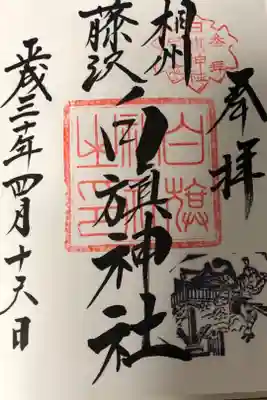 奉拝
相州
藤沢
白旗神社
平成三十年四月十六日
白旗
神社
之印